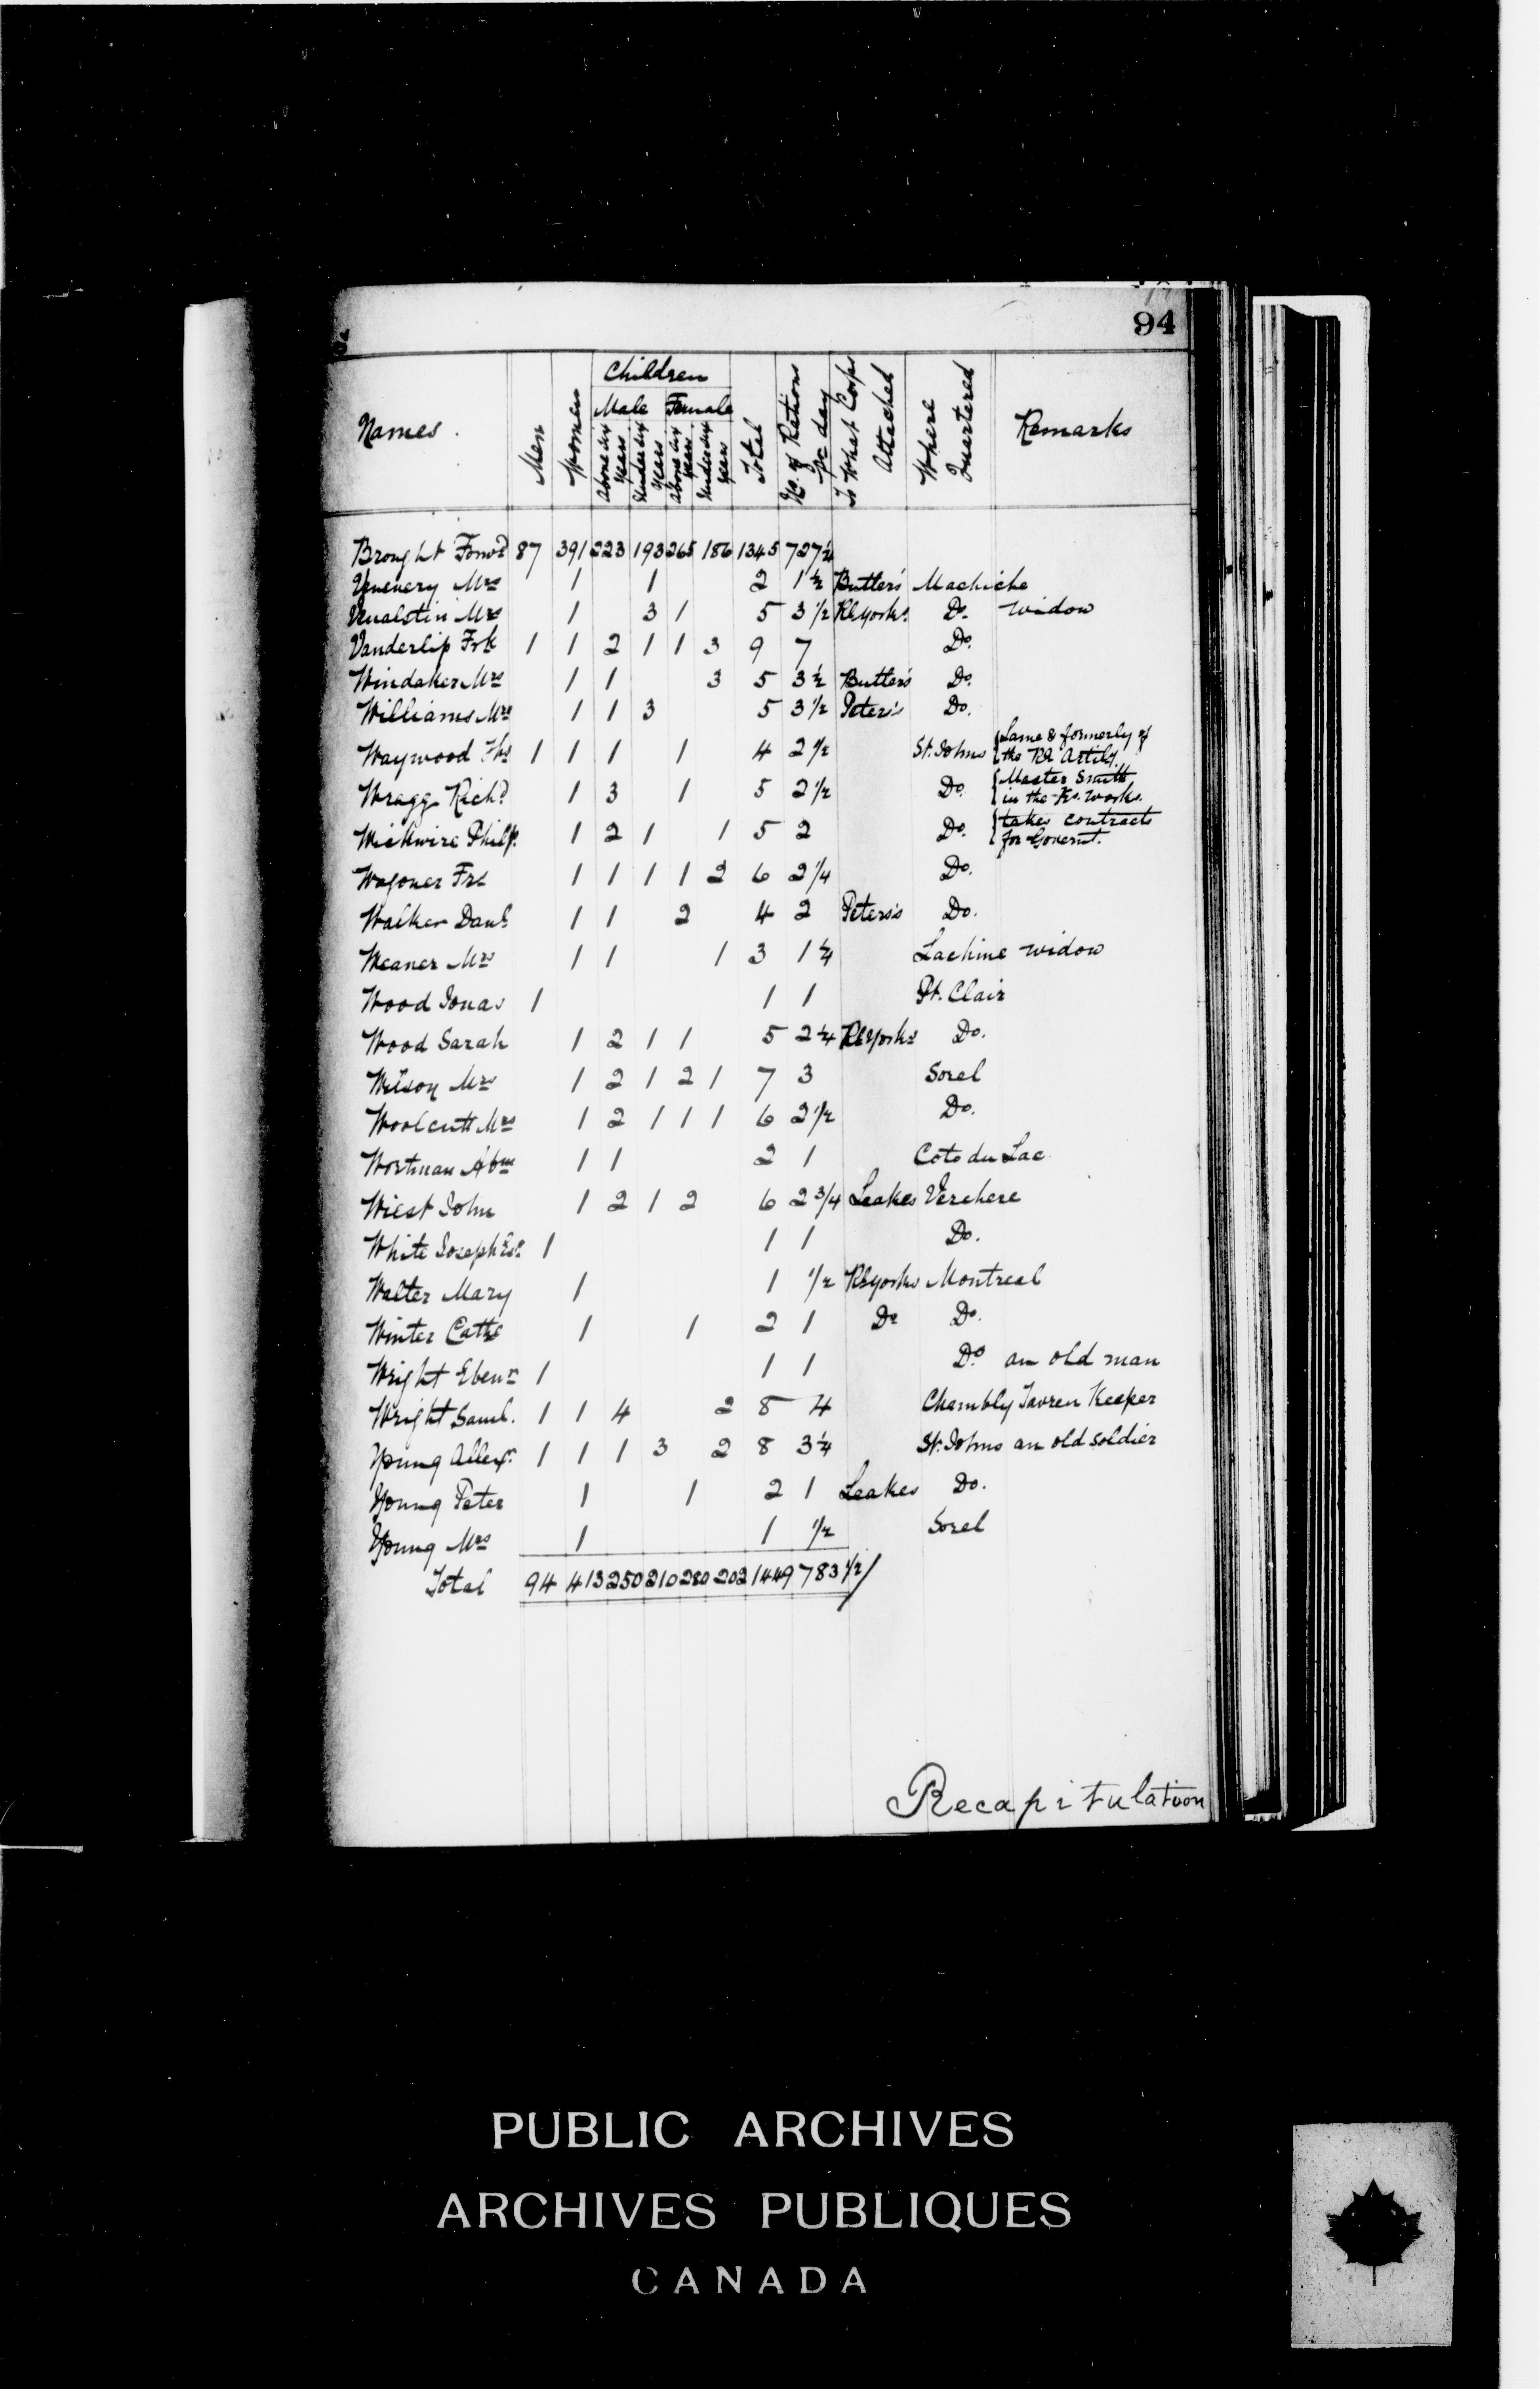 94
Names. Men Women Children Male Above six Years Under six Years Female Above six Years Under six Years Total No. of Rations pr day To What Corps Attached Where Quartered Remarks
Brought Forwd 87 391 223 193 265 186 1345 727 1/4
Mrs 1 1 2 1 1/2 Butler's Machiche
Mrs 1 3 1 5 3 1/2 Rl Yorks. Do. widow
Vanderlip Frk 1 1 2 1 1 3 9 7 Do.
Windaker Mrs 1 1 3 5 3 1/2 Butler's Do.
Williams Mrs 1 1 3 5 3 1/2 Peter's Do.
Waywood Ths 1 1 1 1 4 2 1/2 St. Johns {Lame & formerly of
the Rl Artily.
Wragg Richd 1 3 1 5 2 1/2 Do. {Master Smith
in the Ks. Works.
Wickwire Philp. 1 2 1 1 5 2 Do. {takes contracts
for Governt.
Wagoner Frs 1 1 1 1 2 6 2 1/4 Do.
Walker Danl 1 1 2 4 2 Peters's Do.
Weaner Mrs 1 1 1 3 1 1/4 Lachine widow
Wood Jonas 1 1 1 Pt. Clair
Wood Sarah 1 2 1 1 5 2 1/4 Rl Yorks Do.
Wilson Mrs 1 2 1 2 1 7 3 Sorel
Woolcutt Mrs 1 2 1 1 1 6 2 1/2 Do.
Wortman Abm 1 1 2 1 Coto du Lac
Wiest John 1 2 1 2 6 2 3/4 Leakes Verchere
White Joseph Esqr 1 1 1 Do.
Walter Mary 1 1 1/2 Rl Yorks Montreal
Winter Cathe 1 1 2 1 Do Do.
Wright Ebenr 1 1 1 Do an old man
Wright Saml. 1 1 4 2 8 4 Chambly Tavren Keeper
Young Allexr. 1 1 1 3 2 8 3 1/4 St. Johns an old soldier
Young Peter 1 1 2 1 Leakes Do.
Young Mrs 1 1 1/2 Sorel
Total 94 413 250 210 280 202 1449 783 1/2/
Recapitulation
PUBLIC ARCHIVES
ARCHIVES PUBLIQUES
CANADA